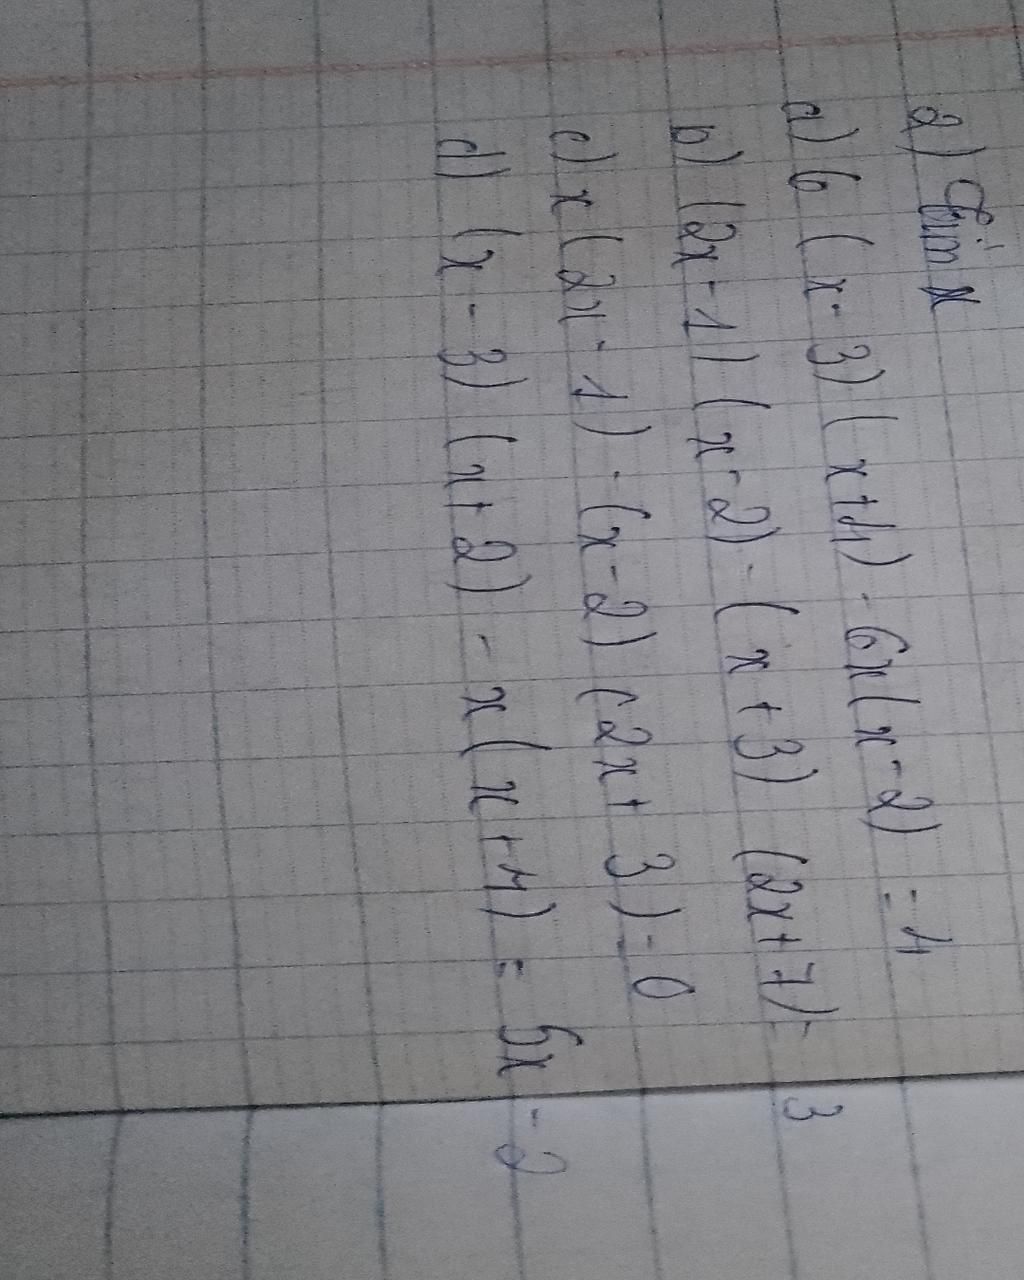 2) Tìm x
a) 6 (x - 3) (x + 4) - 6x (x - 2) = 4
b) (2x - 1) (x - 2) - (x + 3) (2x + 7) = 3
c) x (2x - 1) - (x - 2) (2x + 3) = 0
d) (x - 3) (x + 2) - x (x + 4) = 5x - 2